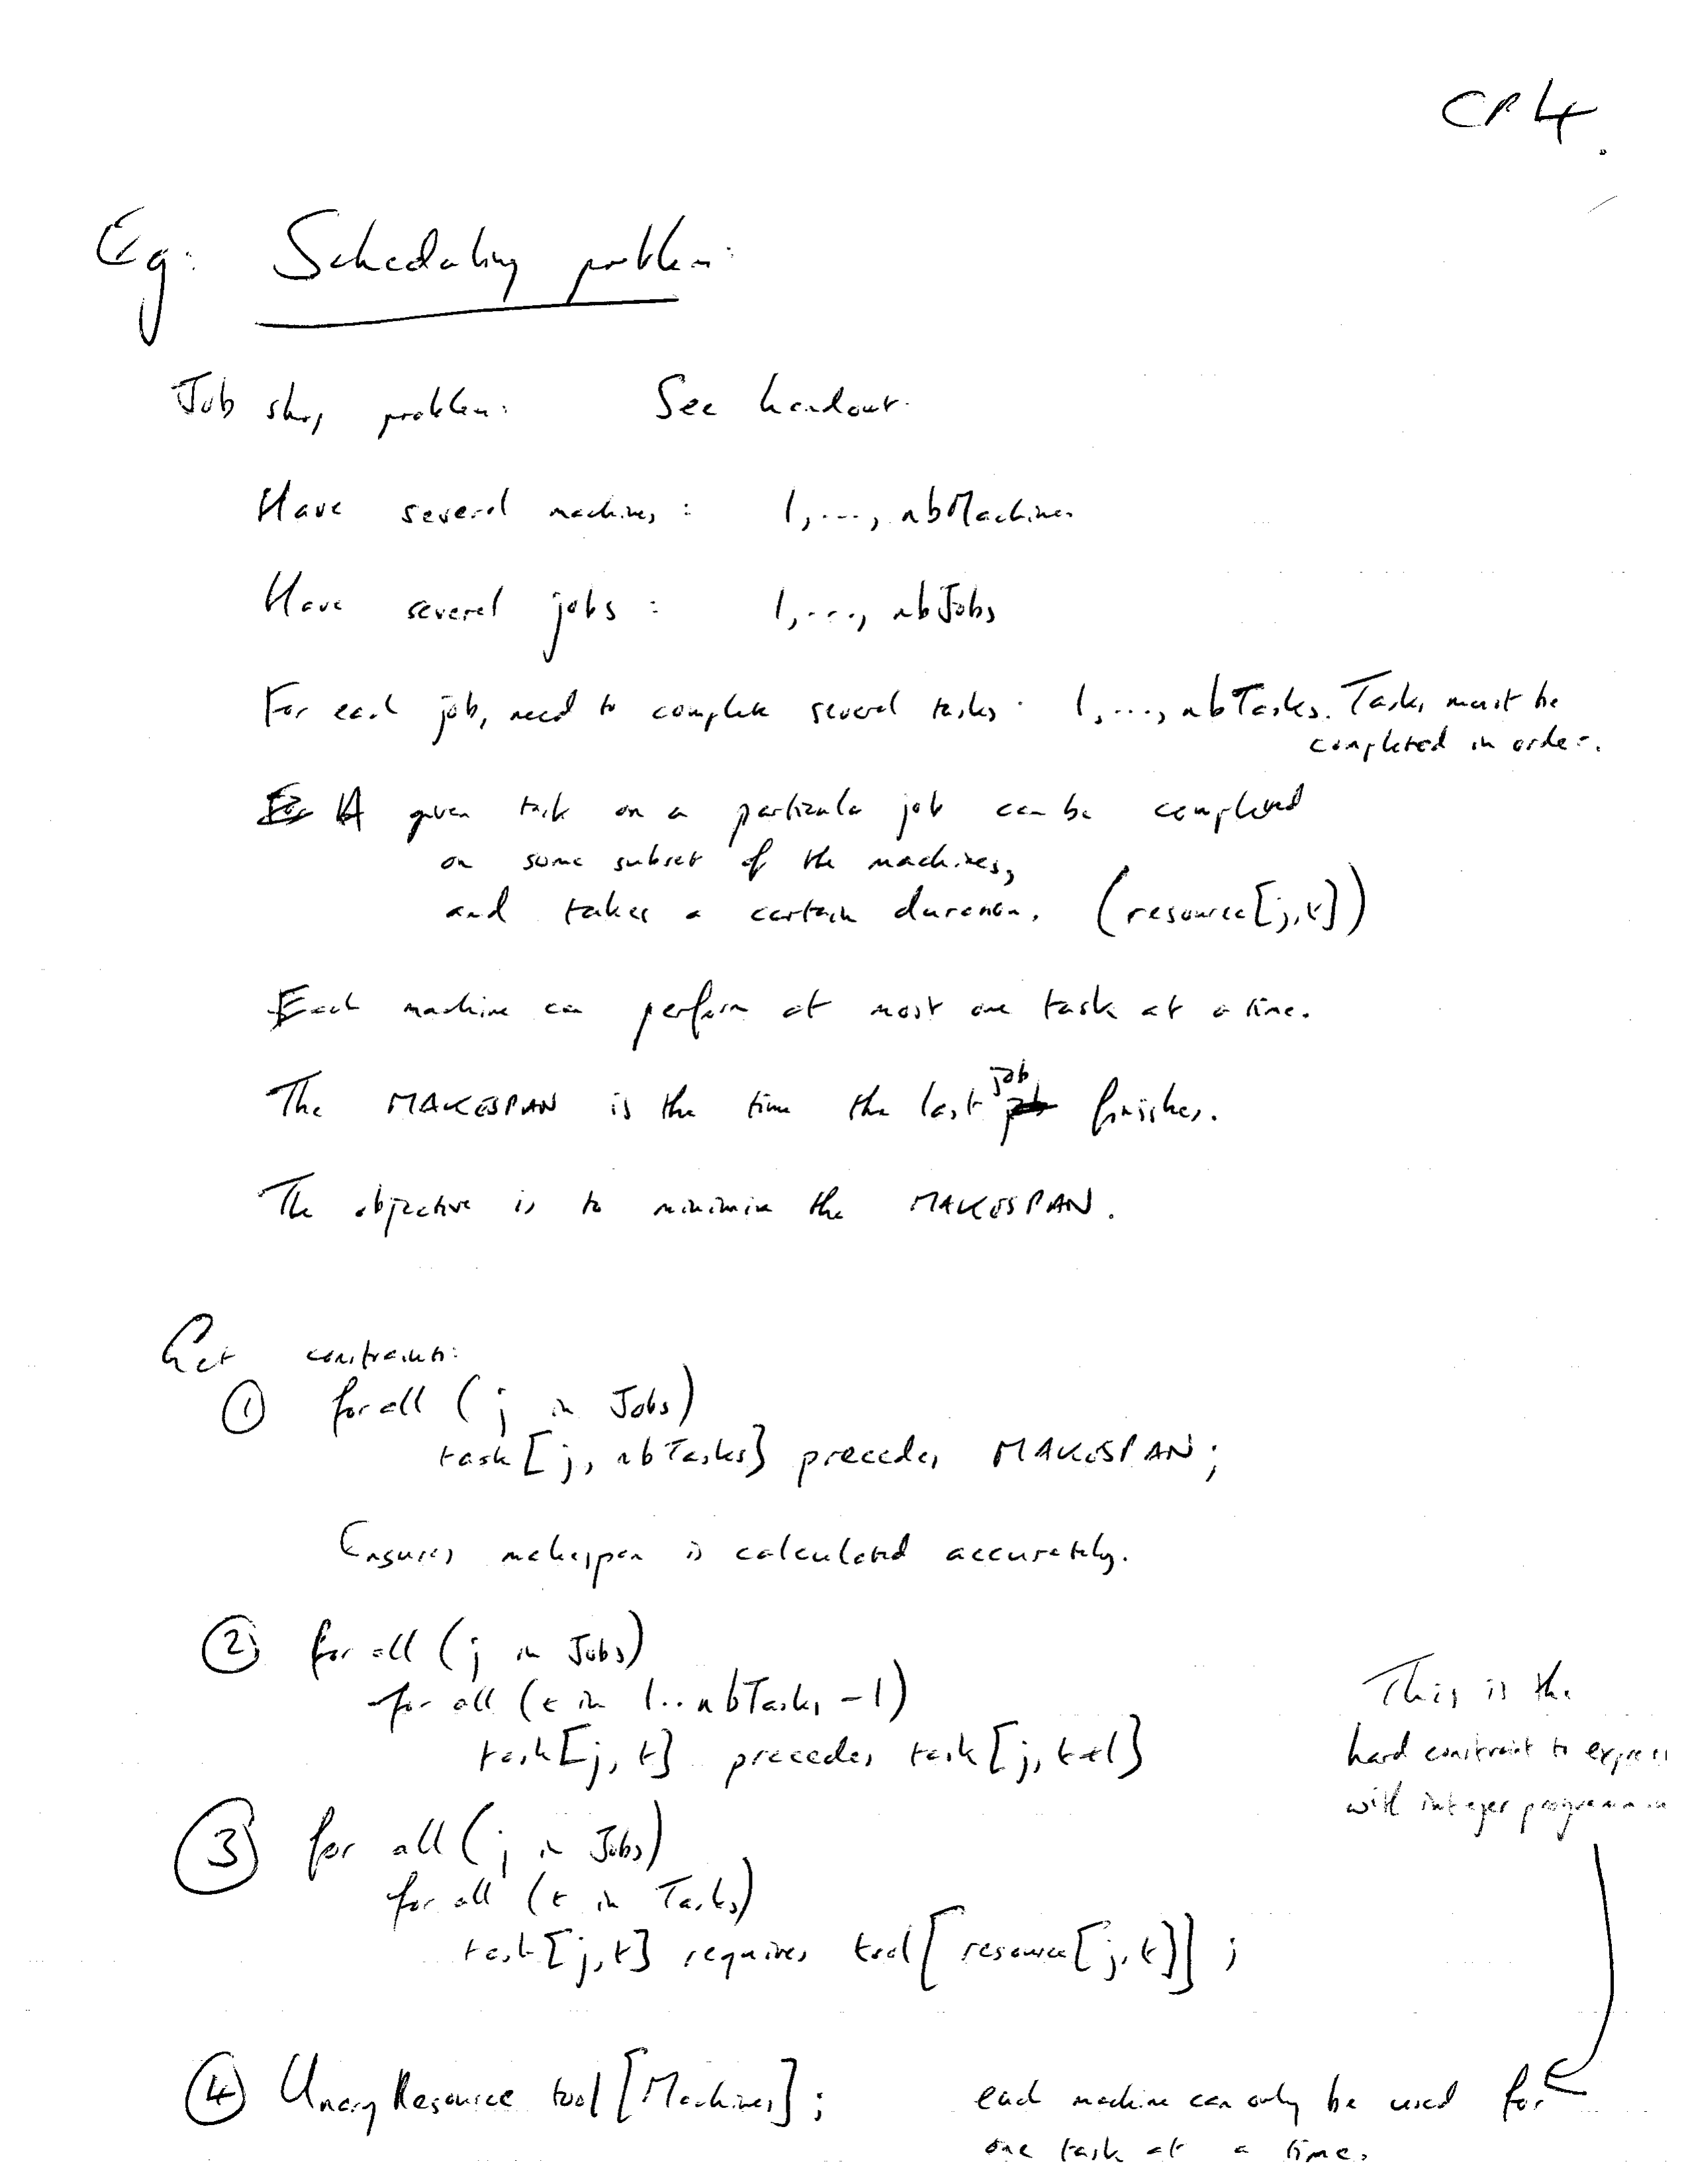 CP 4.
Eg: Scheduling problem:
Job shop problem: See handout.
Have several machines: 1,..., nbMachines
Have several jobs: 1,..., nbJobs
For each job, need to complete several tasks. 1,..., nbTasks. Tasks must be
completed in order.
A given task on a particular job can be completed
on some subset of the machines,
and takes a certain duration. (resource[j,t])
Each machine can perform at most one task at a time.
The MAKESPAN is the time the last job finishes.
The objective is to minimize the MAKESPAN.
Get constraints:
① forall (j in Jobs)
task[j, nbTasks] precedes MAKESPAN;
Ensures makespan is calculated accurately.
② for all (j in Jobs)
for all (t in 1..nbTasks-1)
task[j,t] precedes task[j,t+1]
This is the
hard constraint to express
with integer programming
③ for all (j in Jobs)
for all (t in Tasks)
task[j,t] requires tool[resource[j,t]];
④ UnaryResource tool[Machines]; each machine can only be used for
one task at a time.